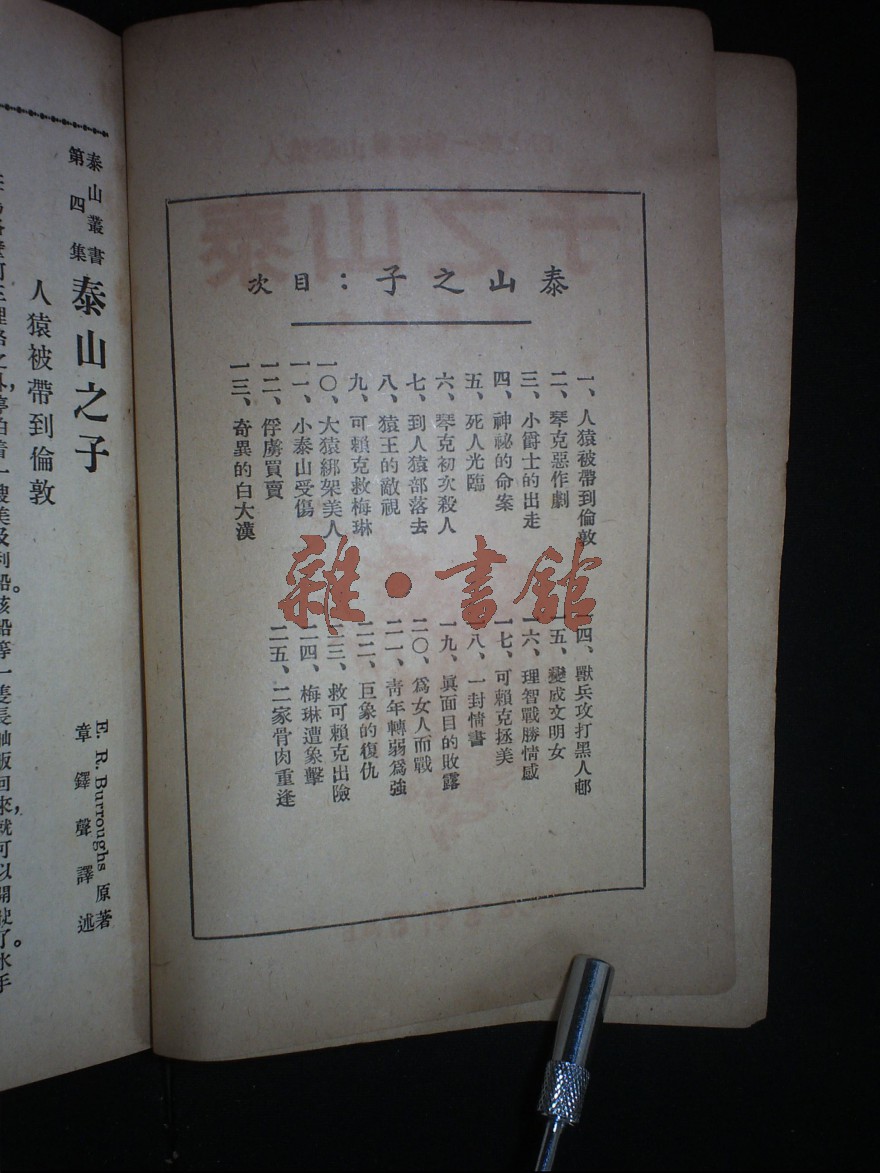 泰山之子：目次
一、人猿被帶到倫敦
二、琴克惡作劇
三、小爵士的出走
四、神祕的命案
五、死人光臨
六、琴克初次殺人
七、到人猿部落去
八、猿王的敵視
九、可賴克救梅琳
一〇、大猿綁架美人
一一、小泰山受傷
一二、俘虜買賣
一三、奇異的白大漢
一四、獸兵攻打黑人邨
一五、變成文明女
一六、理智戰勝情感
一七、可賴克拯美
一八、一封情書
一九、眞面目的敗露
二〇、爲女人而戰
二一、靑年轉弱爲強
二二、巨象的復仇
二三、救可賴克出險
二四、梅琳遭象擊
二五、二家骨肉重逢
雜·書館
泰山叢書
第四集
泰山之子
E. R. Burroughs 原著
章鐸聲譯述
人猿被帶到倫敦
停泊着一艘美及利船。該船等一隻長舢舨回來，就可以開駛了。水手